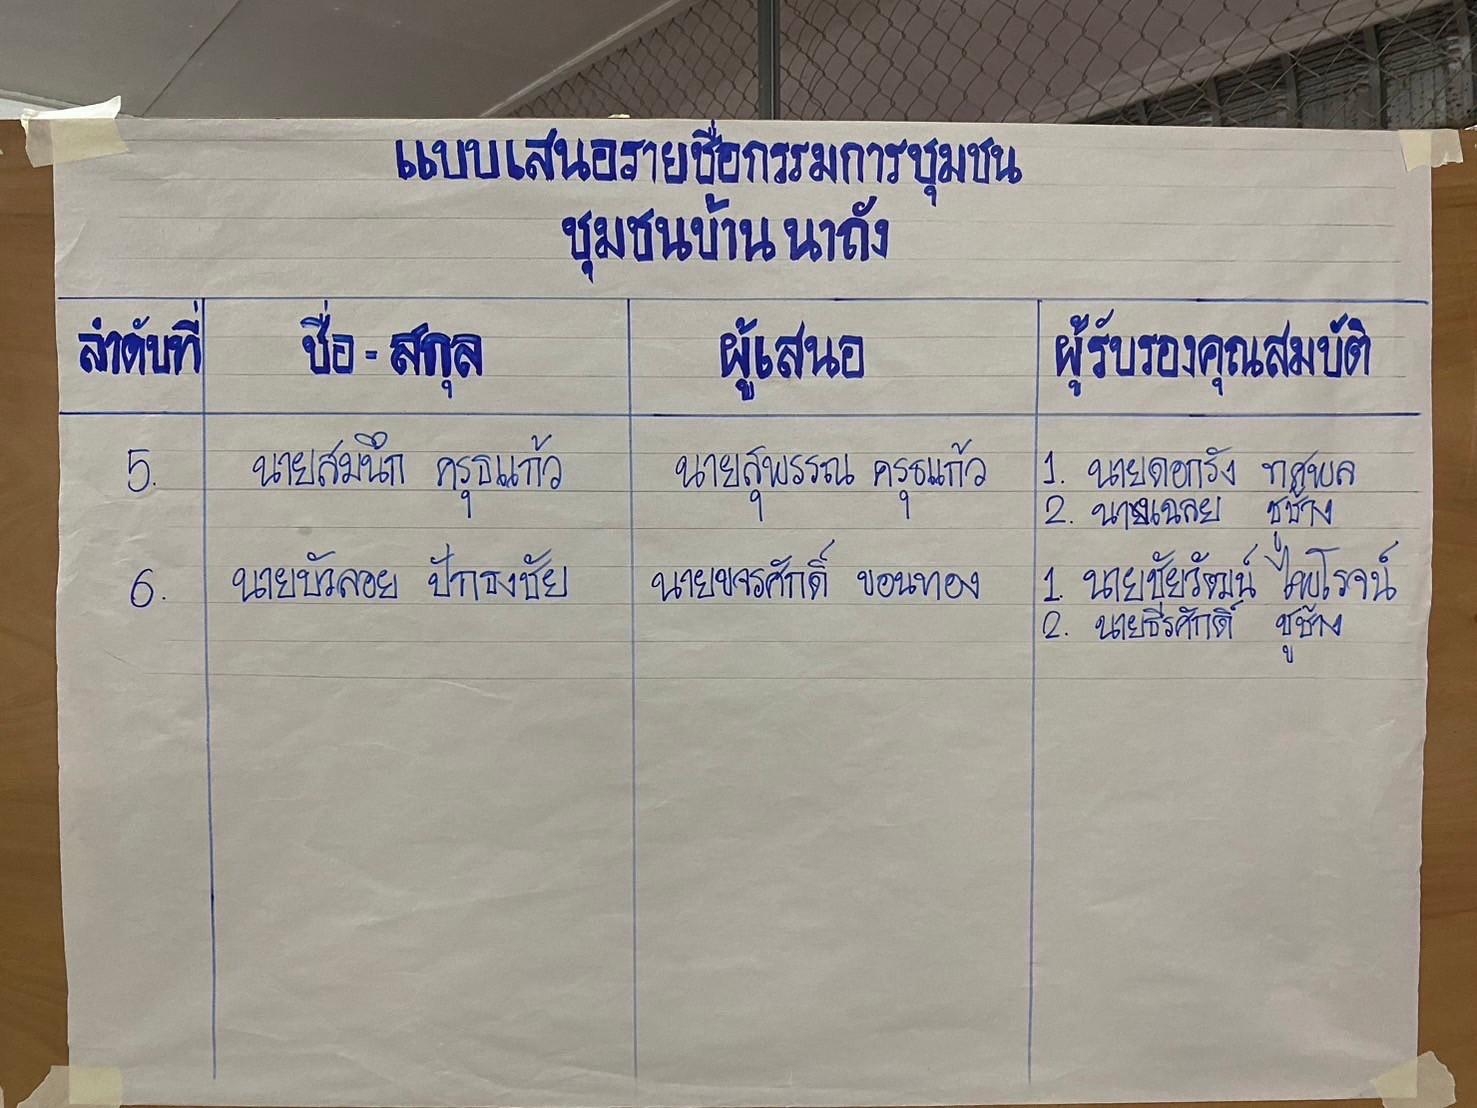 แบบเสนอรายชื่อกรรมการชุมชน
ชุมชนบ้าน นาถัง
ลำดับที่ ชื่อ - สกุล ผู้เสนอ ผู้รับรองคุณสมบัติ
5. นายสมนึก ครุธแก้ว นายสุพรรณ ครุธแก้ว 1. นายดอกรัง ทศพล
2. นายเฉลย ชูช้าง
6. นายบัวลอย ปักธงชัย นายขจรศักดิ์ ขอนทอง 1. นายชัยวัฒน์ ไพโรจน์
2. นายธีรศักดิ์ ชูช้าง